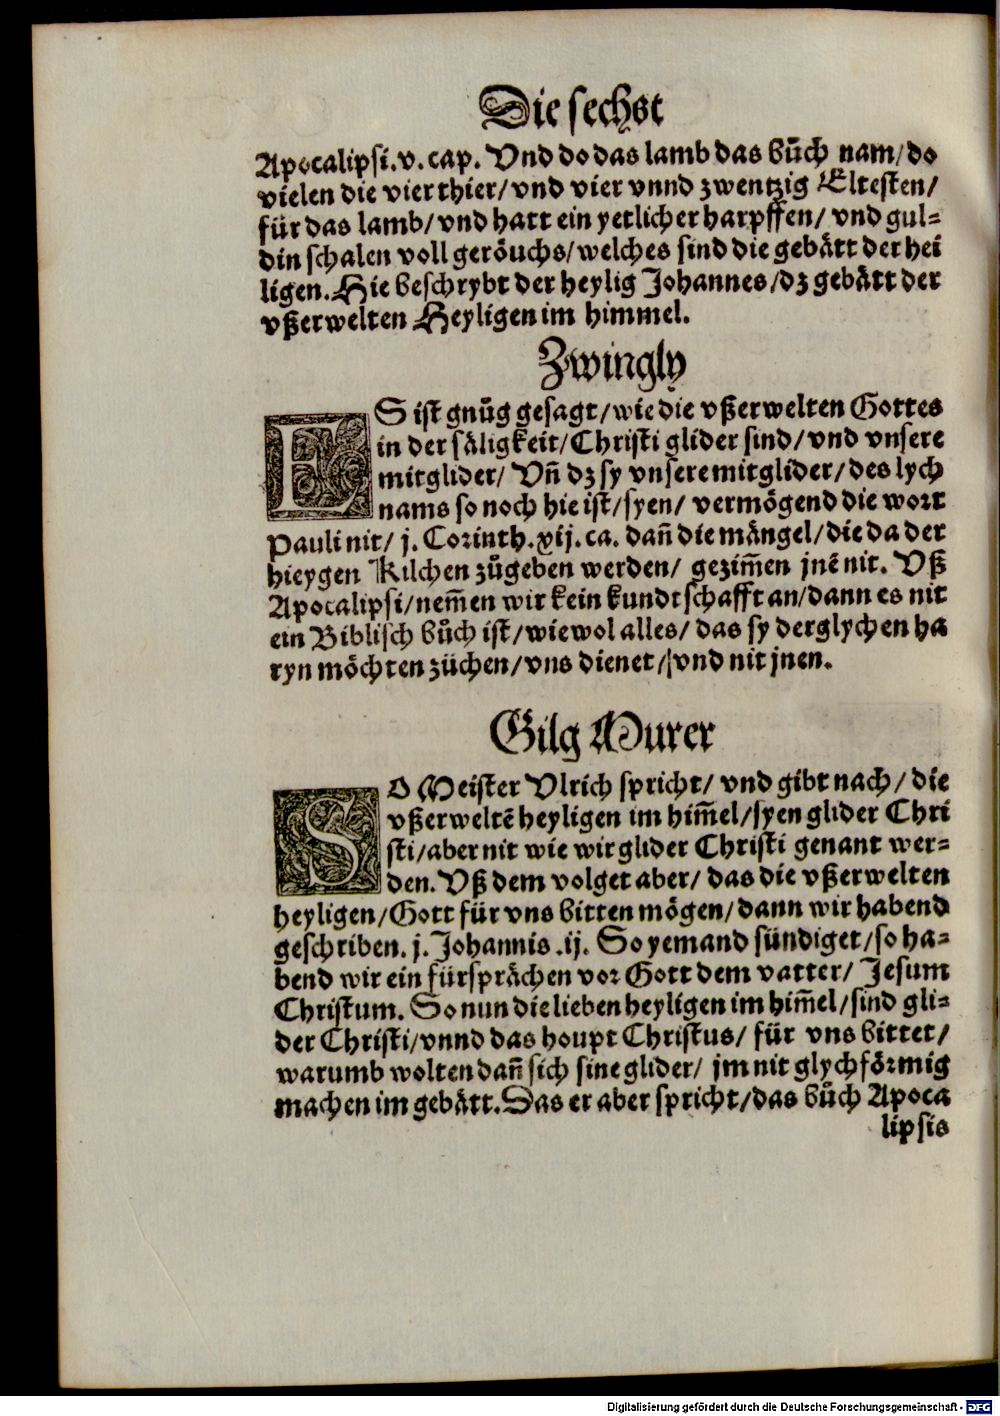 Die sechst
Apocalipsi.v.cap. Vnd do das lamb das bůch nam/do
vielen die vier thier/vnd vier vnnd zwentzig Eltesten/
für das lamb/vnd hatt ein yetlicher harpffen/vnd gul⸗
din schalen voll geröuchs/welches sind die gebätt der hei
ligen. Hie beschrybt der heylig Johannes/dz gebätt der
vßerwelten Heyligen im himmel.
Zwingly
ES ist gnůg gesagt/wie die vßerwelten Gottes
in der säligkeit/Christi glider sind/vnd vnsere
mitglider/ Vñ dz sy vnsere mitglider/des lych
nams so noch hie ist/syen/ vermögend die wort
Pauli nit/ j. Corinth.xij.ca. dañ die mängel/die da der
hieygen Kilchen zůgeben werden/ gezim̃en jnē nit. Vß
Apocalipsi/nem̃en wir kein kundtschafft an/dann es nit
ein Biblisch bůch ist/wiewol alles/ das sy derglychen ha
ryn möchten züchen/vns dienet/vnd nit jnen.
Gilg Murer
SO Meister Vlrich spricht/ vnd gibt nach/ die
vßerweltē heyligen im him̃el/syen glider Chri
sti/aber nit wie wir glider Christi genant wer⸗
den. Vß dem volget aber/ das die vßerwelten
heyligen/Gott für vns bitten mögen/dann wir habend
geschriben. j. Johannis .ij. So yemand sündiget/so ha⸗
bend wir ein fürsprächen vor Gott dem vatter/ Jesum
Christum. So nun die lieben heyligen im him̃el/sind gli⸗
der Christi/vnnd das houpt Christus/ für vns bittet/
warumb wolten dañ sich sine glider/ jm nit glychförmig
machen im gebätt. Das er aber spricht/das bůch Apoca
lipsis
Digitalisierung gefördert durch die Deutsche Forschungsgemeinschaft - DFG